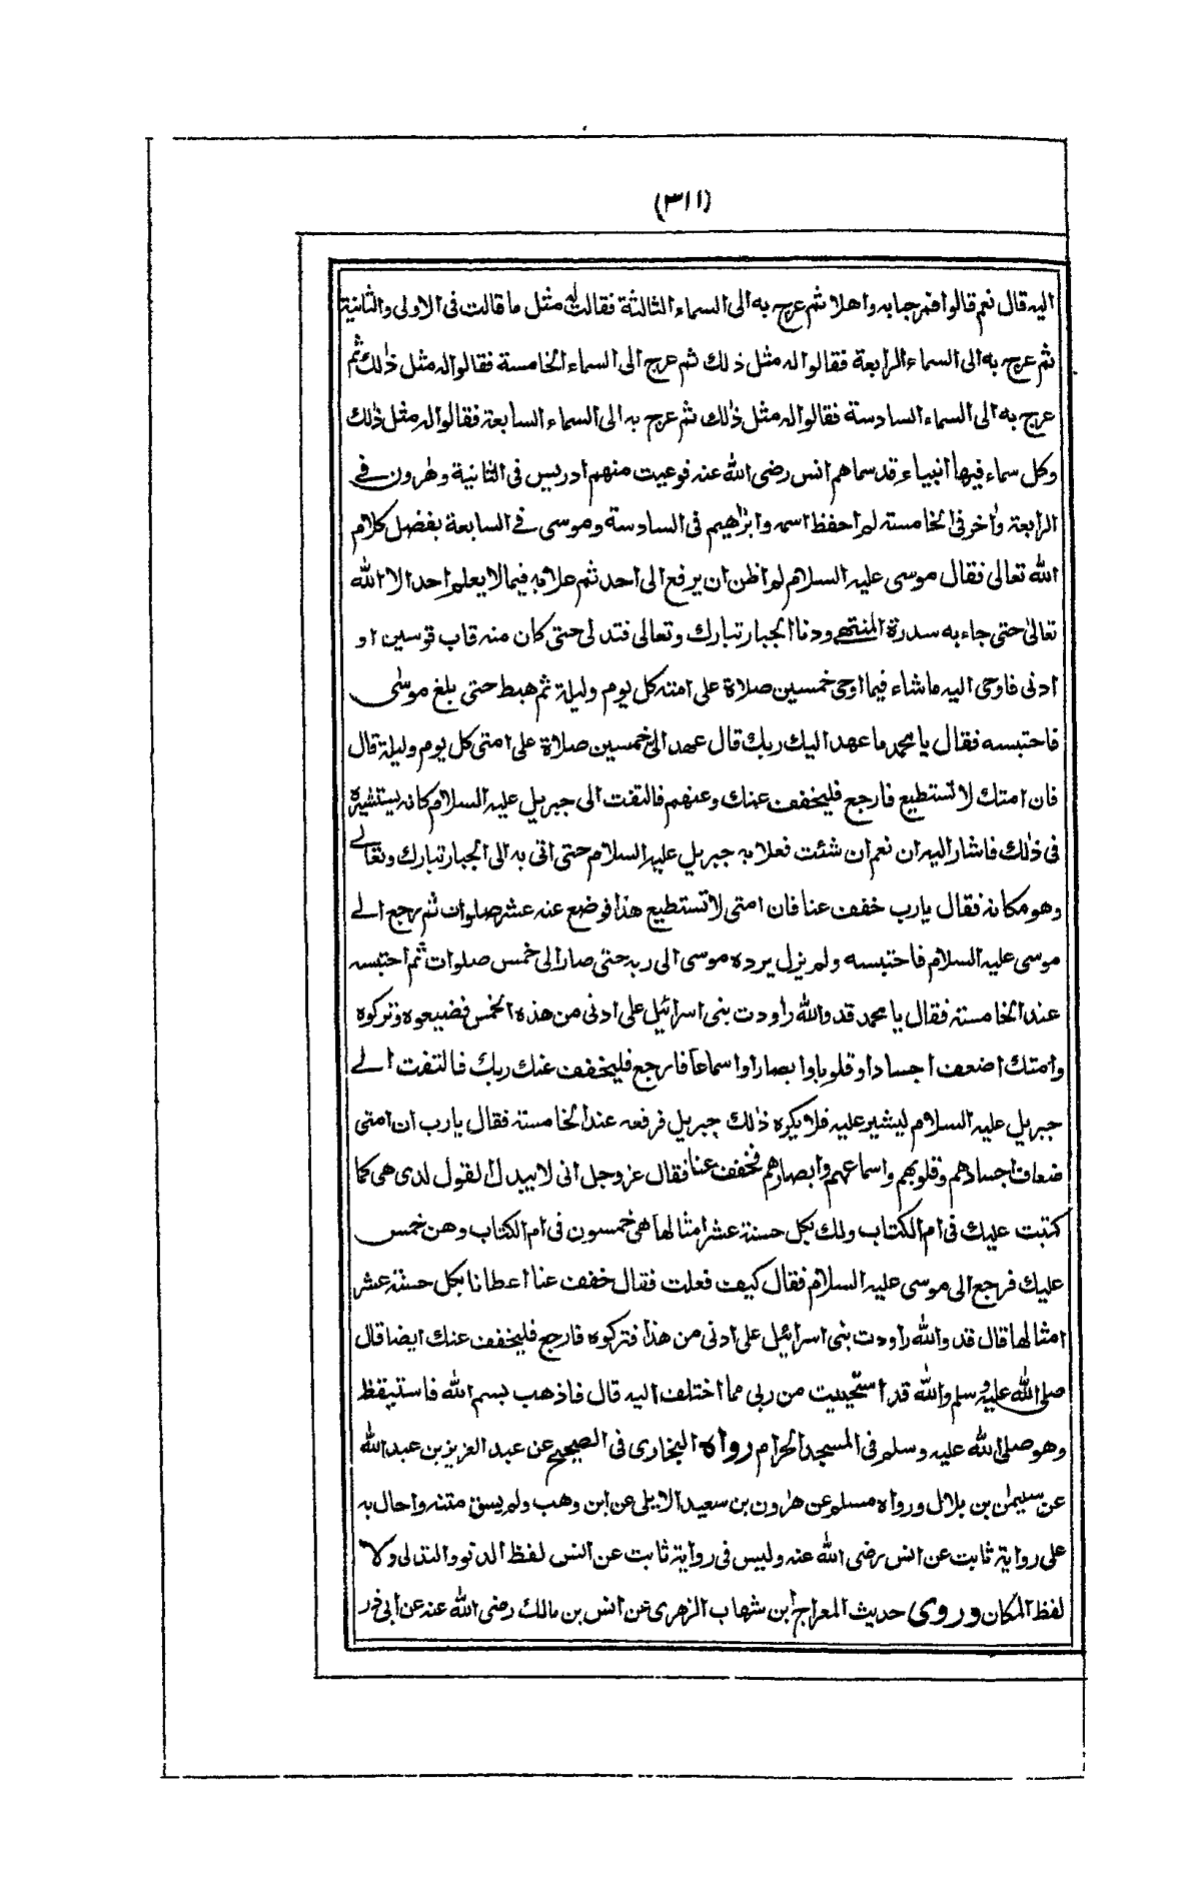 (٣١١)
اليه قال نعم قالوا فمرحبا به واهلا ثم عرج به الى السماء الثالثة فقالت له مثل ما قالت فى الاولى والثانية
ثم عرج به الى السماء الرابعة فقالوا له مثل ذلك ثم عرج الى السماء الخامسة فقالوا له مثل ذلك ثم
عرج به الى السماء السادسة فقالوا له مثل ذلك ثم عرج به الى السماء السابعة فقالوا له مثل ذلك
وكل سماء فيها انبياء قد سماهم انس رضى الله عنه فوعيت منهم ادريس فى الثانية وهرون فے
الرابعة وآخر فى الخامسة لم احفظ اسمه وابراهيم فى السادسة وموسى فے السابعة بفضل كلام
الله تعالى فقال موسى عليه السلام لم اظن ان يرفع الى احد ثم علا به فيما لا يعلم احد الا الله
تعالى حتى جاء به سدرة المنتهے ودنا الجبار تبارك وتعالى فتدلى حتى كان منه قاب قوسين او
ادنى فاوحى اليه ما شاء فيما اوحى خمسين صلاة على امته كل يوم وليلة ثم هبط حتى بلغ موسى
فاحتبسه فقال يا محمد ما عهد اليك ربك قال عهد الى خمسين صلاة على امتى كل يوم وليلة قال
فان امتك لا تستطيع فارجع فليخفف عنك وعنهم فالتفت الى جبريل عليه السلام كانه يستشيره
فى ذلك فاشار اليه ان نعم ان شئت فعلا به جبريل عليه السلام حتى اتى به الى الجبار تبارك وتعالے
وهو مكانه فقال يارب خفف عنا فان امتى لا تستطيع هذا فوضع عنه عشر صلوات ثم رجع الے
موسى عليه السلام فاحتبسه ولم يزل يرده موسى الى ربه حتى صار الى خمس صلوات ثم احتبسه
عند الخامسة فقال يا محمد قد والله راودت بنى اسرائيل على ادنى من هذه الخمس فضيعوه وتركوه
وامتك اضعف اجسادا وقلوبا وابصارا واسماعا فارجع فليخفف عنك ربك فالتفت الے
جبريل عليه السلام ليشير عليه فلا يكره ذلك جبريل فرفعه عند الخامسة فقال يارب ان امتى
ضعاف اجسادهم وقلوبهم واسماعهم وابصارهم فخفف عنا فقال عز وجل انى لا يبدل القول لدى هى كما
كتبت عليك فى ام الكتاب ولك بكل حسنة عشر امثالها هى خمسون فى ام الكتاب وهن خمس
عليك فرجع الى موسى عليه السلام فقال كيف فعلت فقال خفف عنا اعطانا بكل حسنة عشر
امثالها قال قد والله راودت بنى اسرائيل على ادنى من هذا فتركوه فارجع فليخفف عنك ايضا قال
صلى الله عليه وسلم والله قد استحييت من ربى مما اختلف اليه قال فاذهب بسم الله فاستيقظ
وهو صلى الله عليه وسلم فى المسجد الحرام رواه البخارى فى الصحيح عن عبد العزيز بن عبد الله
عن سليمن بن بلال ورواه مسلم عن هرون بن سعيد الايلى عن ابن وهب ولم يسق متنه واحال به
على رواية ثابت عن انس رضى الله عنه وليس فى رواية ثابت عن انس لفظ الدنو والتدلى ولا
لفظ المكان وروى حديث المعراج ابن شهاب الزهرى عن انس بن مالك رضى الله عنه عن ابى ذر